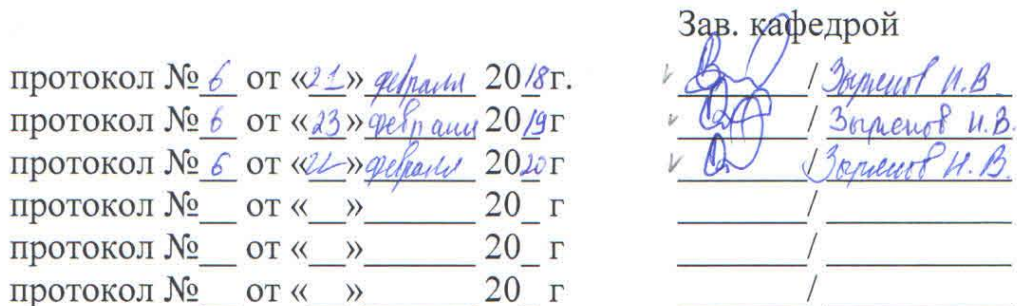 Зав. кафедрой
протокол № 6 от «21» февраля 2018г. / Зырянов И.В.
протокол № 6 от «23» февраля 2019г / Зырянов И.В.
протокол № 6 от «22» февраля 2020г / Зырянов И.В.
протокол №__ от «__»_______ 20_ г _______/__________
протокол №__ от «__»_______ 20_ г _______/__________
протокол №__ от «__»_______ 20_ г _______/__________